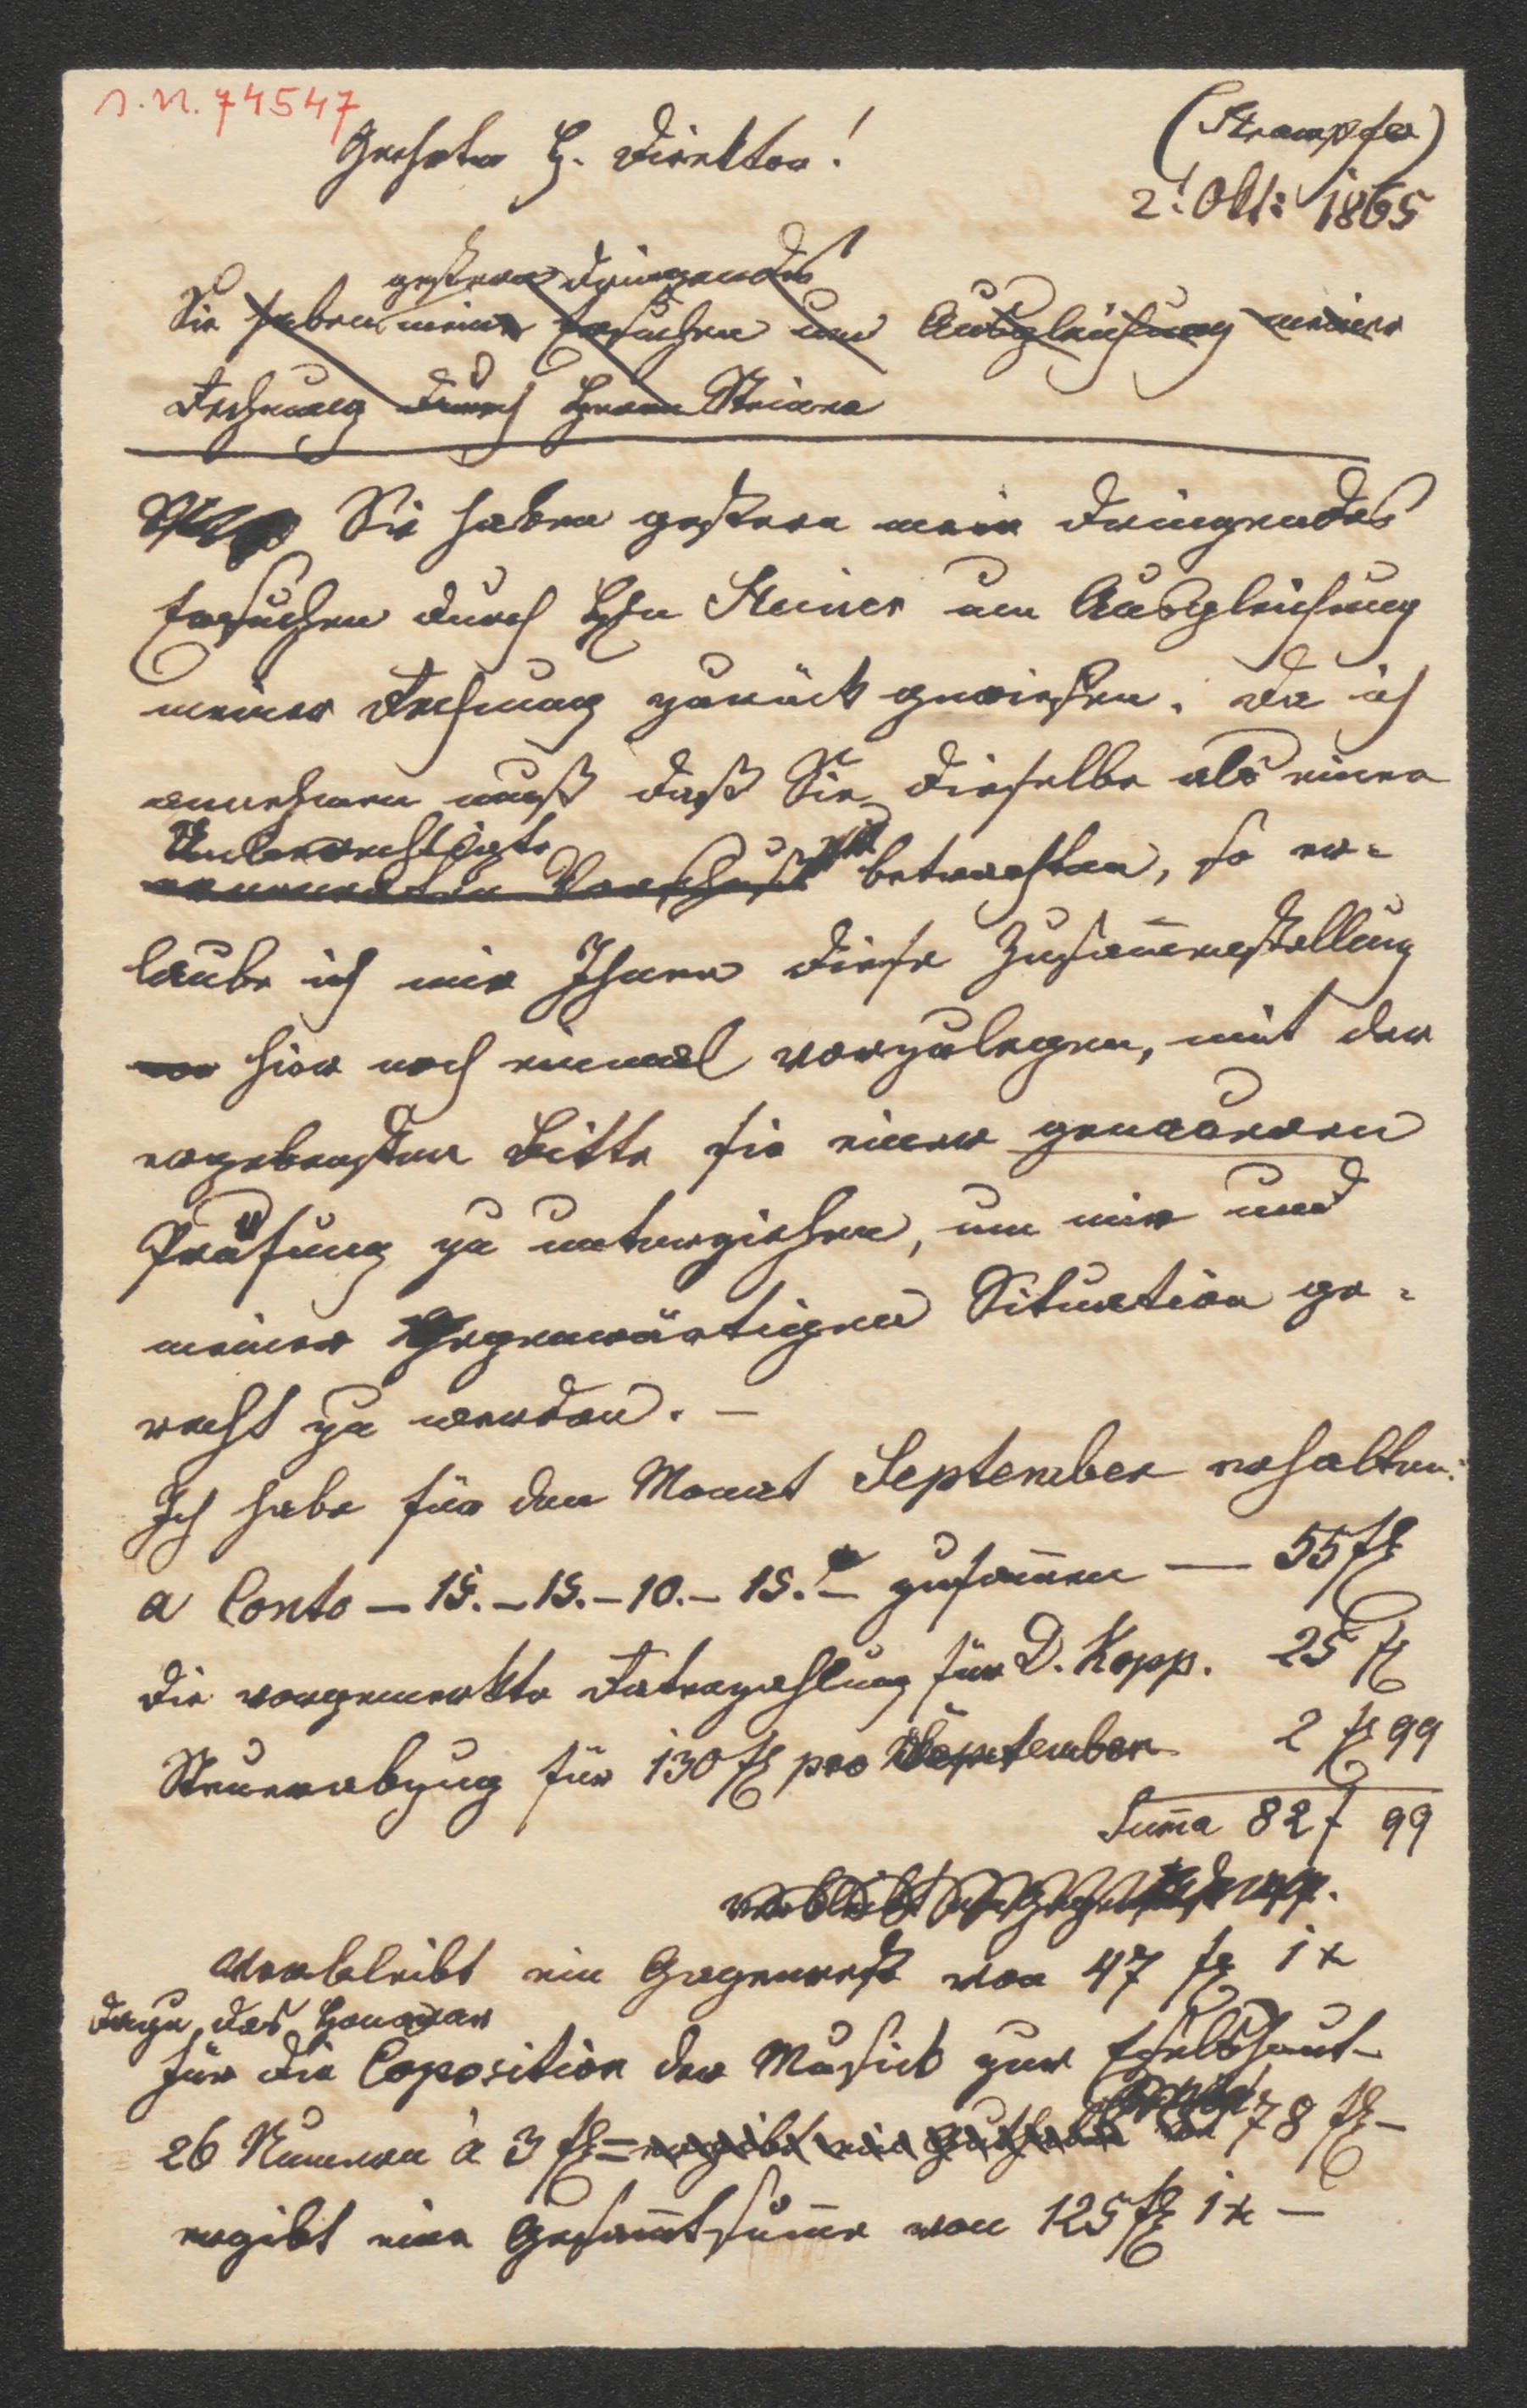 I.N. 74547
(Strampfer)
Geehrter H. Direktor!
2t. Okt: 1865
gestern dringendes
Sie haben mein Ersuchen um Ausgleichung meiner
Rechnung durch Herrn Steiner
Sie haben gestern mein dringendes
Ersuchen durch Hrn Steiner um Ausgleichung
meiner Rechnung zurück gewiesen. Da ich
annehmen muß daß Sie dieselbe als einen
Unberechtigte
Vorschuß betrachten, so er-
laube ich mir Ihnen diese Zusam̄enstellung
hier noch einmal vorzulegen, mit der
ergebensten Bitte sie einer genaueren
Prüfung zu unterziehen, um mir und
meiner gegenwärtigen Situation ge-
recht zu werden. –
Ich habe für den Monat September erhalten:
a Conto – 15. – 15. – 10. – 15. – zusam̄en — 55 fl
Die vorgemerkte Ratenzahlung für D. Kopp. 25 fl
Steuerabzug für 130 fl pro September 2 fl 99
Sum̄a 82 f 99
verbleibt
Verbleibt ein Gagenrest von 47 fl 1 x
Dazu das Honorar
für die Coposition der Musick zur Eselshaut –
26 Nummern à 3 fl = ergibt ein Guthaben 78 fl –
ergibt eine Gesam̄tsum̄e von 125 fl 1 x –